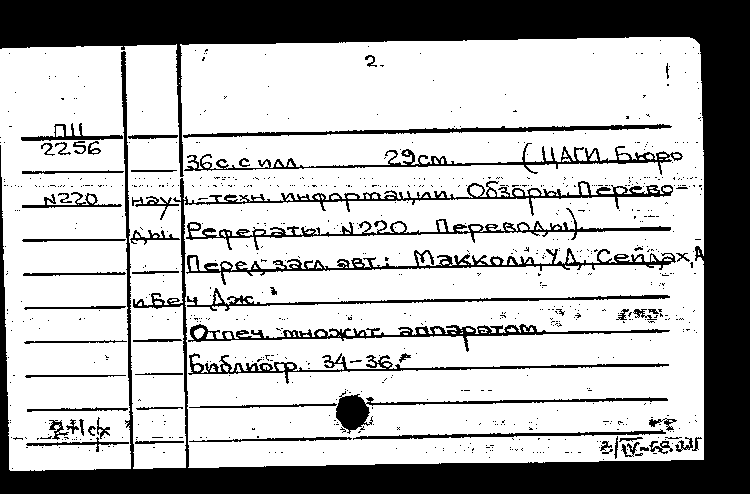 2.
П11
2256
36с. с илл. 29см. (ЦАГИ. Бюро
N220 науч.-техн. информации. Обзоры. Перево-
ды. Рефераты. N220. Переводы)
Перед загл. авт.: Макколи, У.Д., Сейдах, А
и Беч Дж.
Отпеч. множит. аппаратом.
Библиогр.: 34-36.
2+1сх